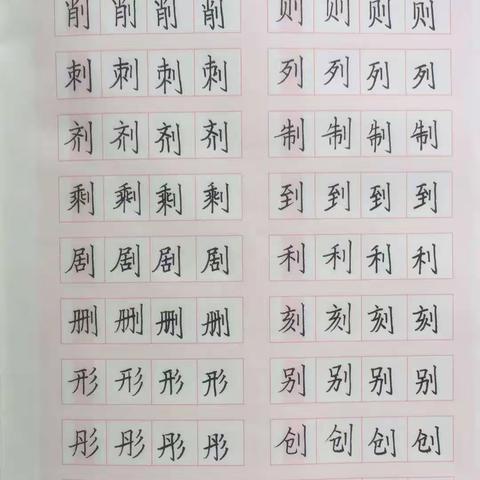 削 削 削 削 则 则 则 则
刺 刺 刺 刺 列 列 列 列
剂 剂 剂 剂 制 制 制 制
剩 剩 剩 剩 到 到 到 到
剧 剧 剧 剧 利 利 利 利
删 删 删 删 刻 刻 刻 刻
形 形 形 形 别 别 别 别
彤 彤 彤 彤 创 创 创 创